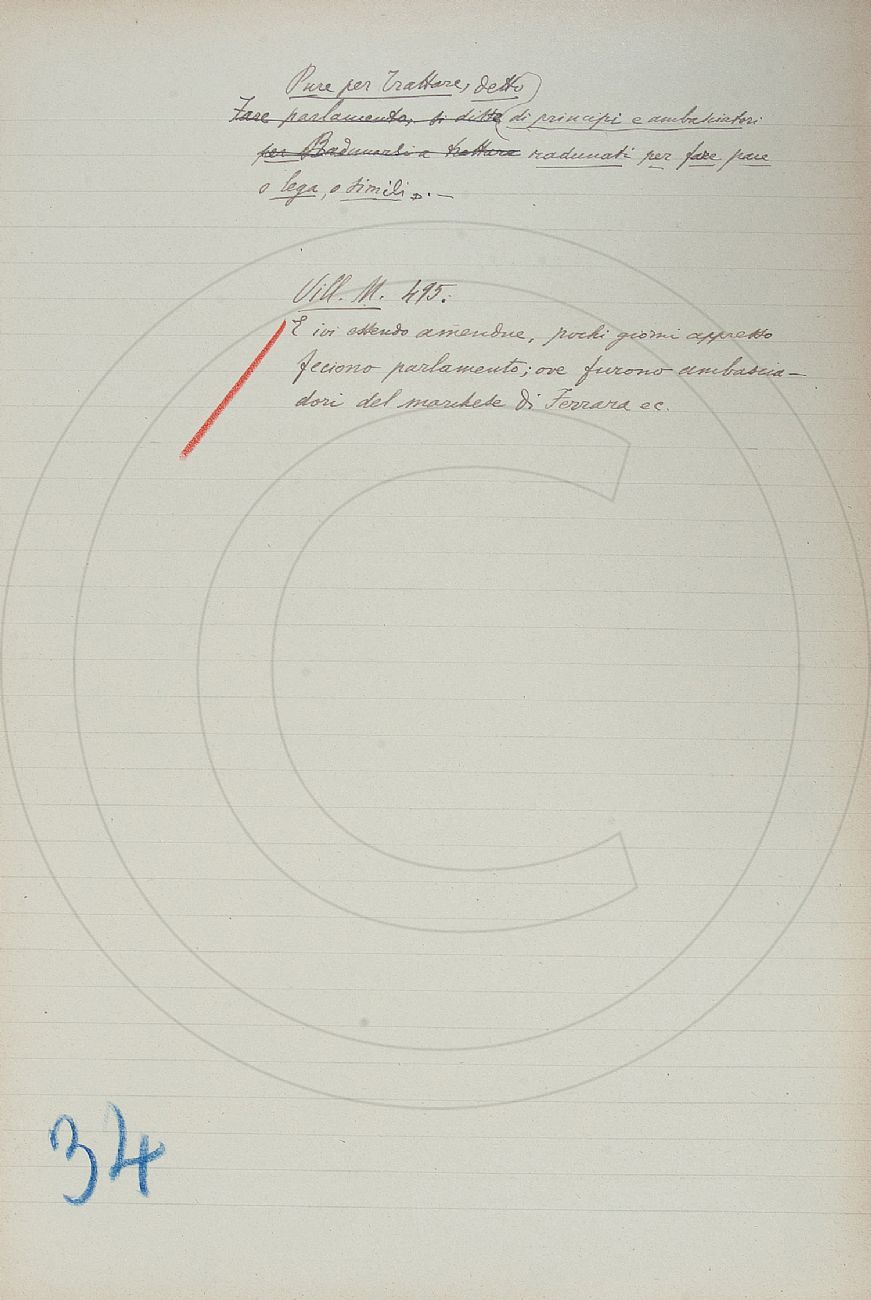 Pure per Trattare, detto
Fare parlamento, si disse di principi e ambasciatori
per Radunarsi a trattare radunati per fare pace
o lega, o simili. —
Vill. M. 495.
E ivi essendo amendue, pochi giorni appresso
feciono parlamento; ove furono ambascia-
dori del marchese di Ferrara ec.
34